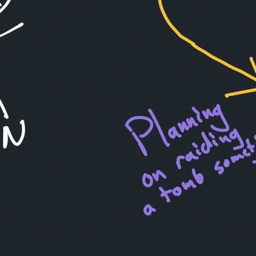 N
Planning
on raiding
a tomb